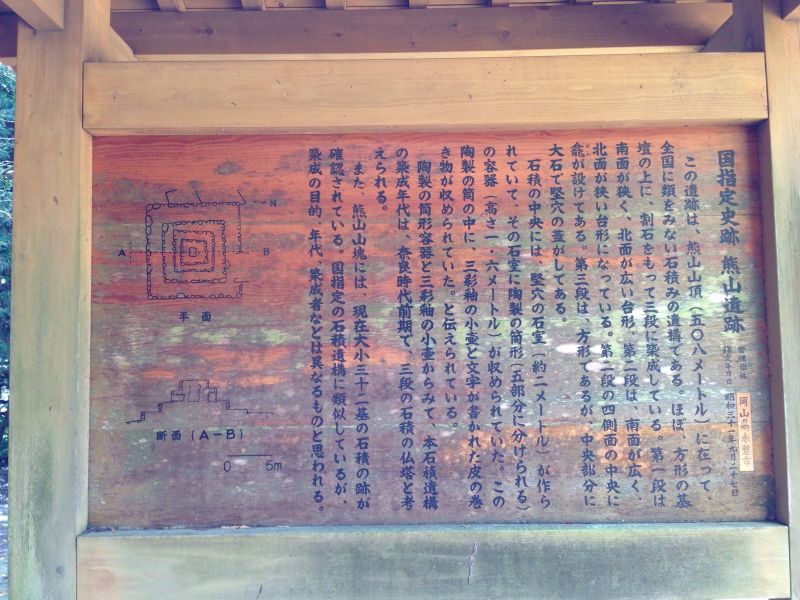 国指定史跡 熊山遺跡
管理団体 岡山県赤磐市
指定年月日 昭和三十一年九月二十七日
この遺跡は、熊山山頂(五〇八メートル)に在って、
全国に類をみない石積みの遺構である。ほぼ、方形の基
壇の上に、割石をもって三段に築成している。第一段は
南面が狭く、北面が広い台形、第二段は、南面が広く、
北面が狭い台形になっている。第二段の四側面の中央に
龕が設けてある。第三段は、方形であるが、中央部分に
大石で竪穴の蓋がしてある。
石積の中央には、竪穴の石室(約二メートル)が作ら
れていて、その石室に陶製の筒形(五部分に分けられる)
の容器(高さ一・六メートル)が収められていた。この
陶製の筒の中に、三彩釉の小壷と文字が書かれた皮の巻
き物が収められていた。と伝えられている。
陶製の筒形容器と三彩釉の小壷からみて、本石積遺構
の築成年代は、奈良時代前期で、三段の石積の仏塔と考
えられる。
また、熊山山塊には、現在大小三十二基の石積の跡が
確認されている。国指定の石積遺構に類似しているが、
築成の目的、年代、築成者などは異なるものと思われる。
N
A B
平面
断面(A-B)
0 5m